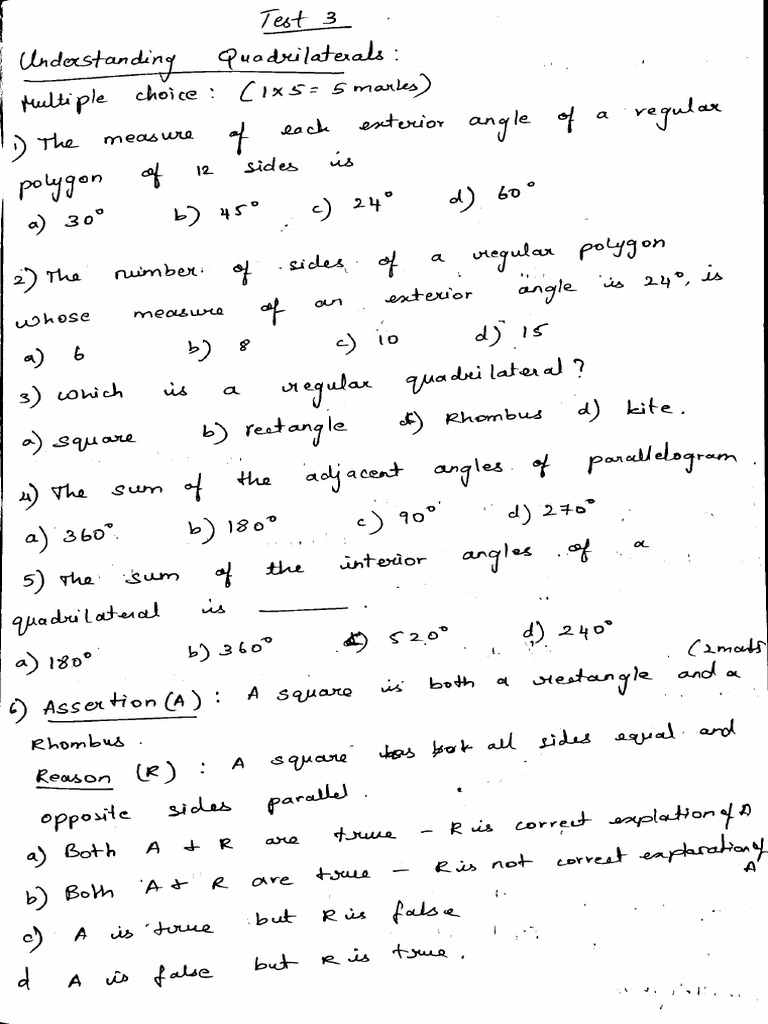 Test 3
Understanding Quadrilaterals:
Multiple choice: (1×5=5 marks)
1) The measure of each exterior angle of a regular
polygon of 12 sides is
a) 30° b) 45° c) 24° d) 60°
2) The number of sides of a regular polygon
whose measure of an exterior angle is 24°, is
a) 6 b) 8 c) 10 d) 15
3) which is a regular quadrilateral?
a) square b) rectangle c) Rhombus d) kite.
4) The sum of the adjacent angles of parallelogram.
a) 360° b) 180° c) 90° d) 270°
5) The sum of the interior angles of a
quadrilateral is ________.
a) 180° b) 360° c) 520° d) 240°
(2 marks
6) Assertion (A) : A square is both a rectangle and a
Rhombus.
Reason (R) : A square has all sides equal and
opposite sides parallel.
a) Both A & R are true – R is correct explation of A
b) Both A & R are true – R is not correct explanation of
A
c) A is true but R is false
d A is false but R is true.